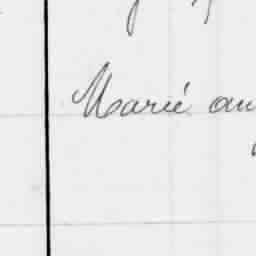 Marié au